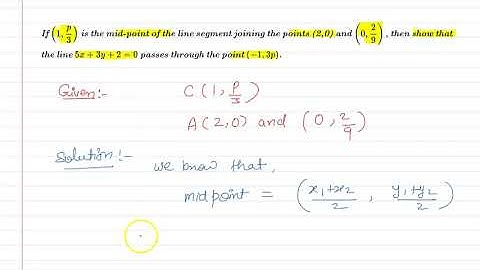 If (1, p/3) is the mid-point of the line segment joining the points (2,0) and (0, 2/9) , then show that
the line 5x + 3y + 2 = 0 passes through the point (−1, 3p).
Given:- C (1, P/3)
A (2, 0) and (0, 2/9)
Solution:- we know that,
midpoint = (x₁+x₂/2 , y₁+y₂/2)